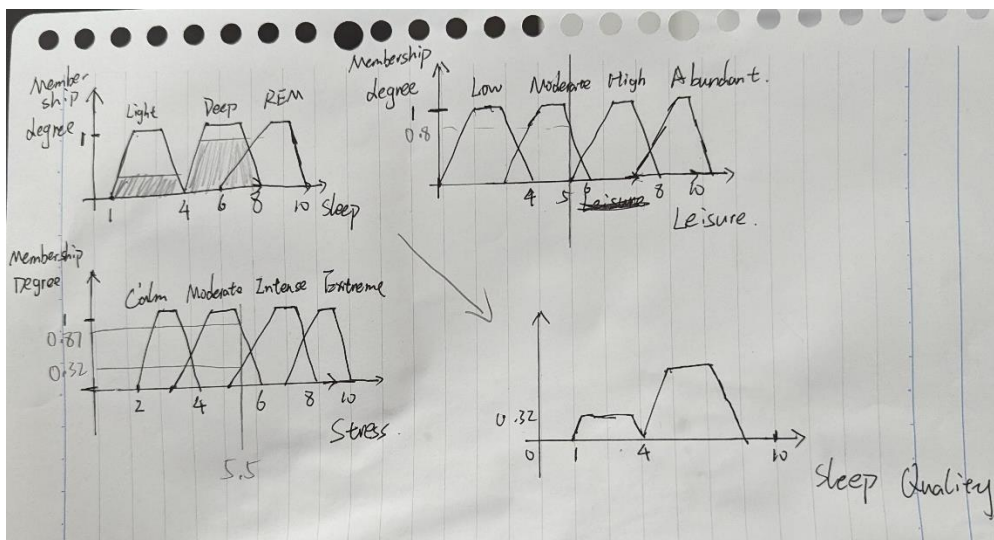 Member-
ship
degree
Light
Deep
REM
1
1
4
6
8
10
Sleep
Membership
degree
Low
Moderate
High
Abundant.
1
0.8
4
5
6
8
10
Leisure.
Membership
Degree
Calm
Moderate
Intense
Extreme
1
0.87
0.32
2
4
6
8
10
Stress.
5.5
0.32
0
1
4
10
Sleep Quality